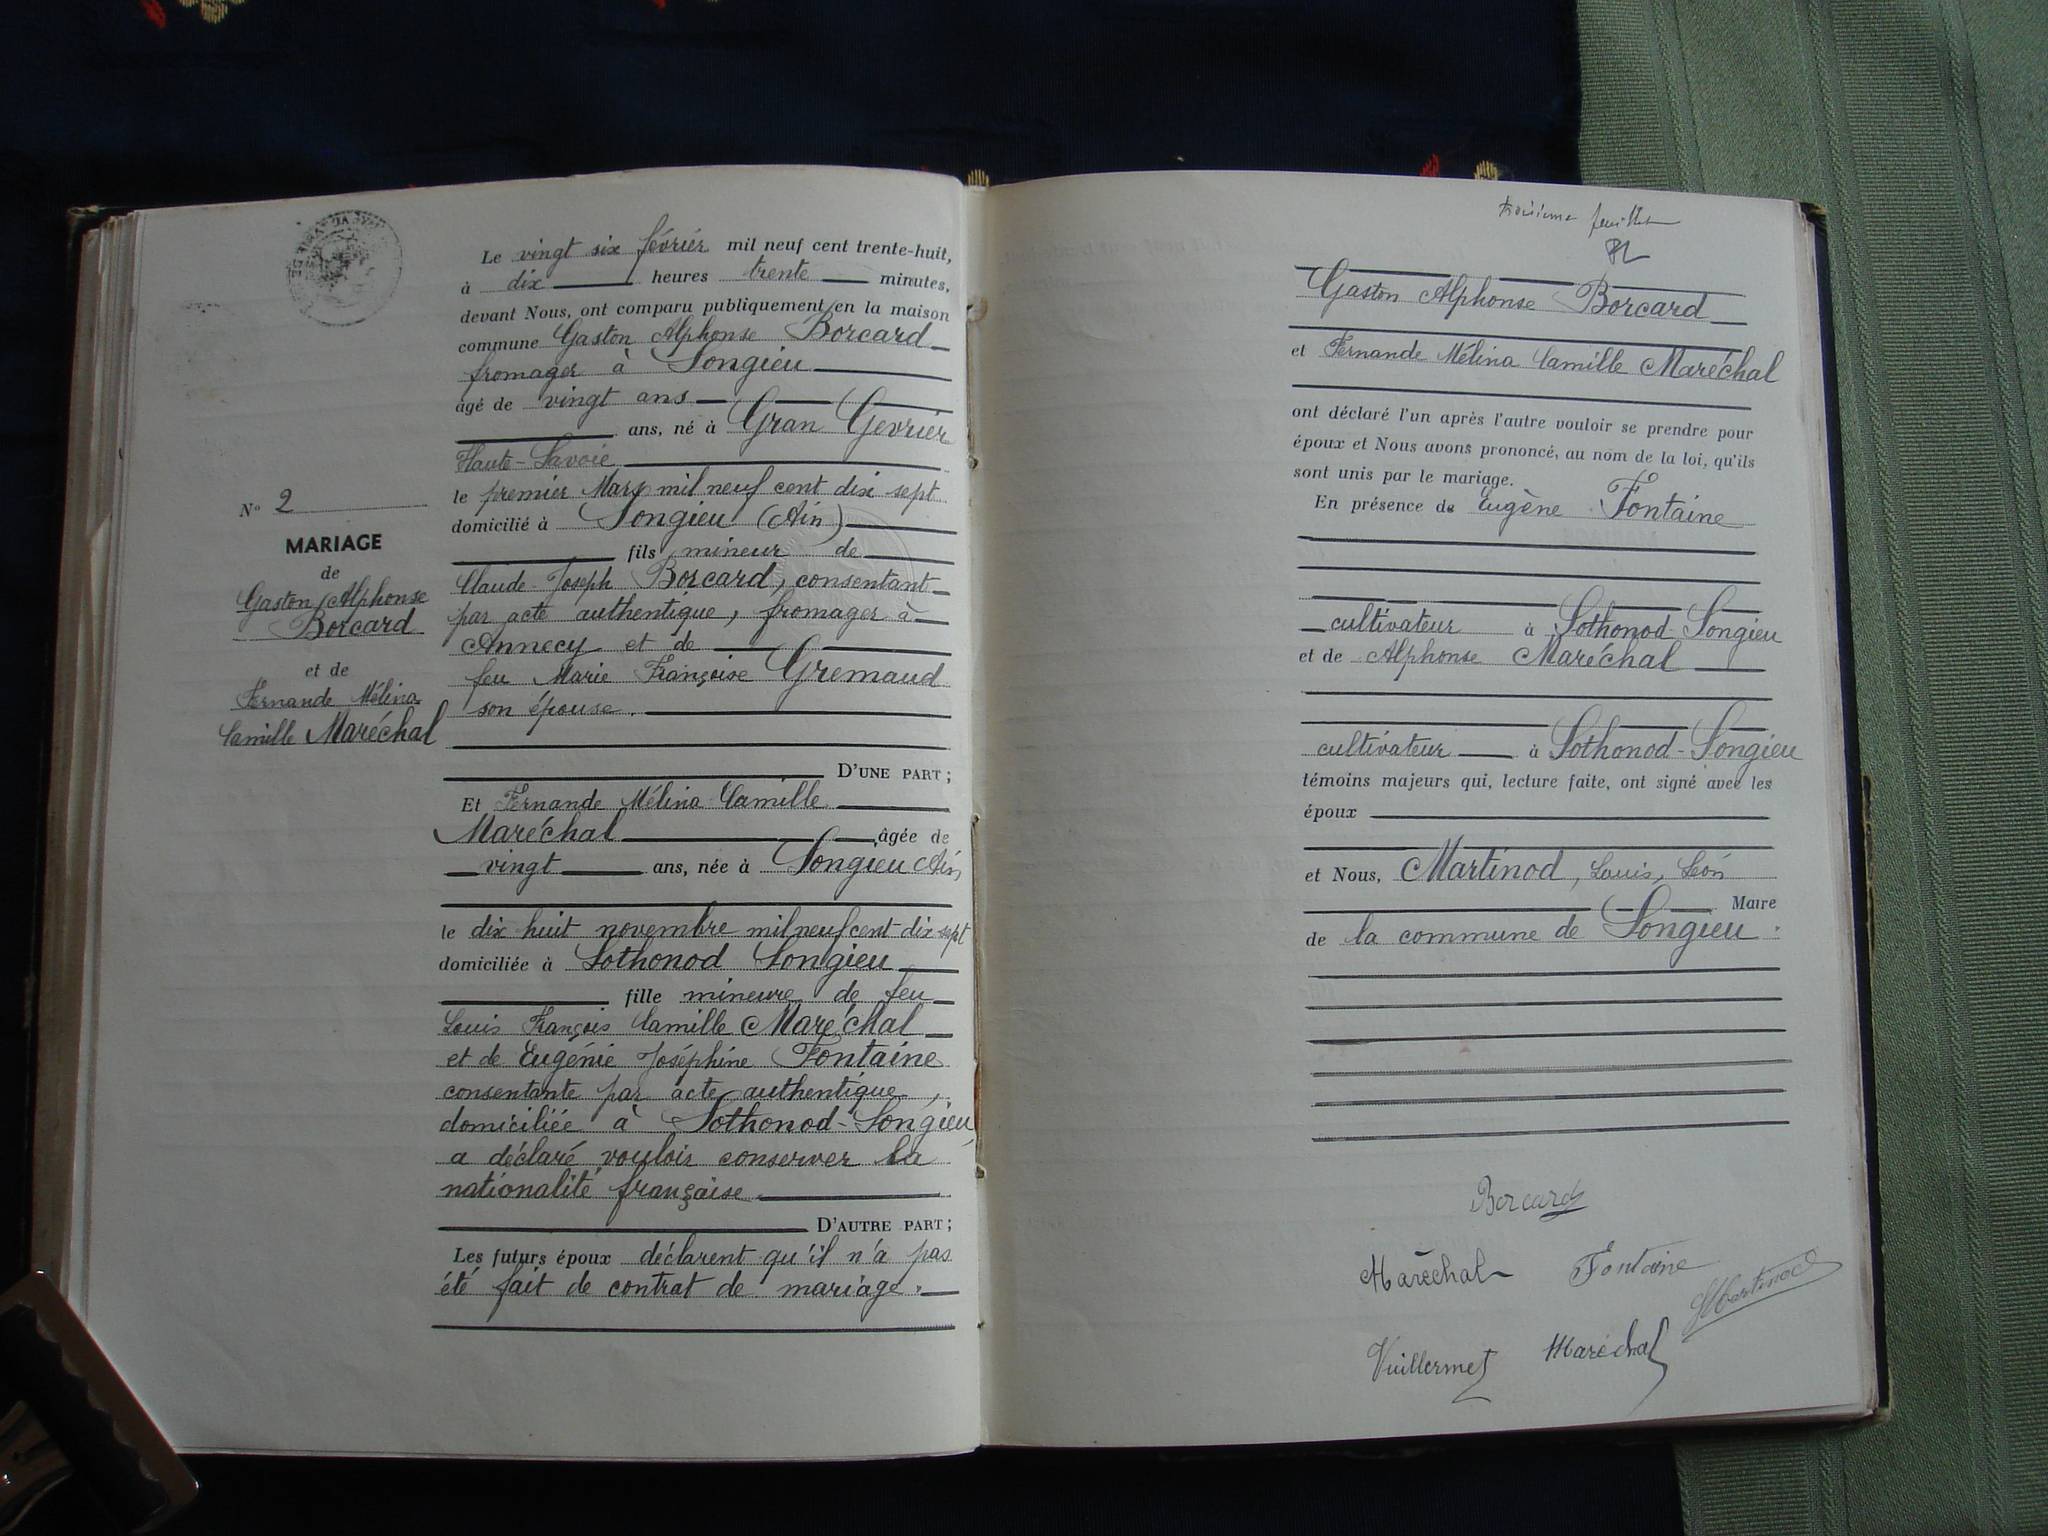 N° 2
MARIAGE
de
Gaston Alphonse
Borcard
et de
Fernande Mélina
Camille Maréchal
Le vingt six février mil neuf cent trente-huit,
à dix heures trente minutes,
devant Nous, ont comparu publiquement en la maison
commune Gaston Alphonse Borcard
fromager à Songieu
âgé de vingt ans
ans, né à Gran Gevrier
Haute-Savoie
le premier Mars mil neuf cent dix sept
domicilié à Songieu (Ain)
fils mineur de
Claude Joseph Borcard, consentant
par acte authentique, fromager à
Annecy et de
feu Marie Françoise Gremaud
son épouse.
D'UNE PART ;
Et Fernande Mélina Camille
Maréchal âgée de
vingt ans, née à Songieu Ain
le dix huit novembre mil neuf cent dix sept
domiciliée à Sothonod Songieu
fille mineure de feu
Louis François Camille Maréchal
et de Eugénie Joséphine Fontaine
consentante par acte authentique,
domiciliée à Sothonod-Songieu
a déclaré vouloir conserver la
nationalité française.
D'AUTRE PART ;
Les futurs époux déclarent qu'il n'a pas
été fait de contrat de mariage.
troisième feuillet
Gaston Alphonse Borcard
et Fernande Mélina Camille Maréchal
ont déclaré l'un après l'autre vouloir se prendre pour
époux et Nous avons prononcé, au nom de la loi, qu'ils
sont unis par le mariage.
En présence de Eugène Fontaine
cultivateur à Sothonod Songieu
et de Alphonse Maréchal
cultivateur à Sothonod-Songieu
témoins majeurs qui, lecture faite, ont signé avec les
époux
et Nous, Martinod, Louis, Léon
Maire
de la commune de Songieu.
Borcard
Maréchal Fontaine
Martinod
Vuillermet Maréchal